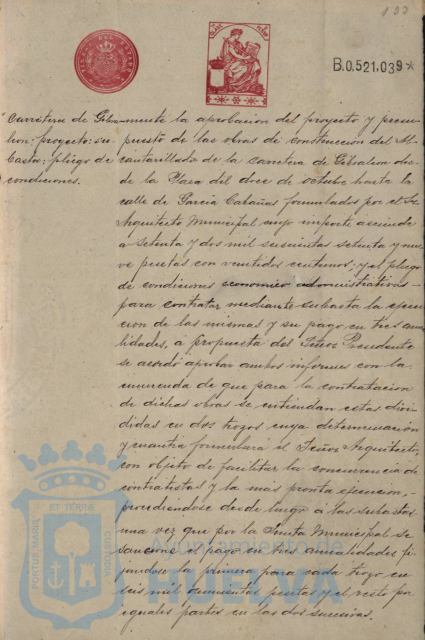 133
B.0.521.039*
Carretera de Gibra-
leon: proyecto: su-
basta: pliego de
condiciones.
mente la aprobacion del proyecto y presu-
puesto de las obras de construccion del Al-
cantarillado de la carretera de Gibraleon des-
de la Plaza del doce de octubre hasta la
calle de Garcia Cabañas formulados por el Sr
Arquitecto Municipal cuyo importe asciende
á setenta y dos mil seiscientas setenta y nue-
ve pesetas con veintidos centimos; y el pliego
de condiciones economico administrativas
para contratar mediante subasta la ejecu-
cion de las mismas y su pago en tres anua-
lidades, á propuesta del Señor Presidente
se acordó aprobar ambos informes con la
enmienda de que para la contratacion
de dichas obras se entiendan estas divi-
didas en dos trozos cuya determinacion
y cuantia formulará el Señor Arquitecto,
con objeto de facilitar la concurrencia de
contratistas y la más pronta ejecucion,
procediendose desde luego á las subastas
una vez que por la Junta Municipal se
sancione el pago en tres anualidades fi-
jandose la primera para cada trozo en
seis mil pesetas y el resto por
iguales partes en las dos sucesivas.
Ayuntamiento
HUELVA
PORTUS MARIS
ET TERRÆ
CUSTODIA